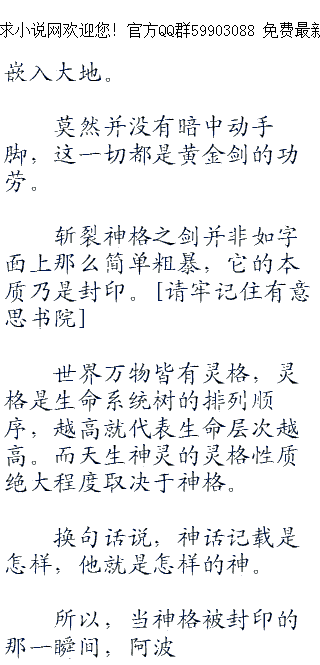 求小说网欢迎您! 官方QQ群59903088 免费最新
嵌入大地。
莫然并没有暗中动手
脚，这一切都是黄金剑的功
劳。
斩裂神格之剑并非如字
面上那么简单粗暴，它的本
质乃是封印。[请牢记住有意
思书院]
世界万物皆有灵格，灵
格是生命系统树的排列顺
序，越高就代表生命层次越
高。而天生神灵的灵格性质
绝大程度取决于神格。
换句话说，神话记载是
怎样，他就是怎样的神。
所以，当神格被封印的
那一瞬间，阿波